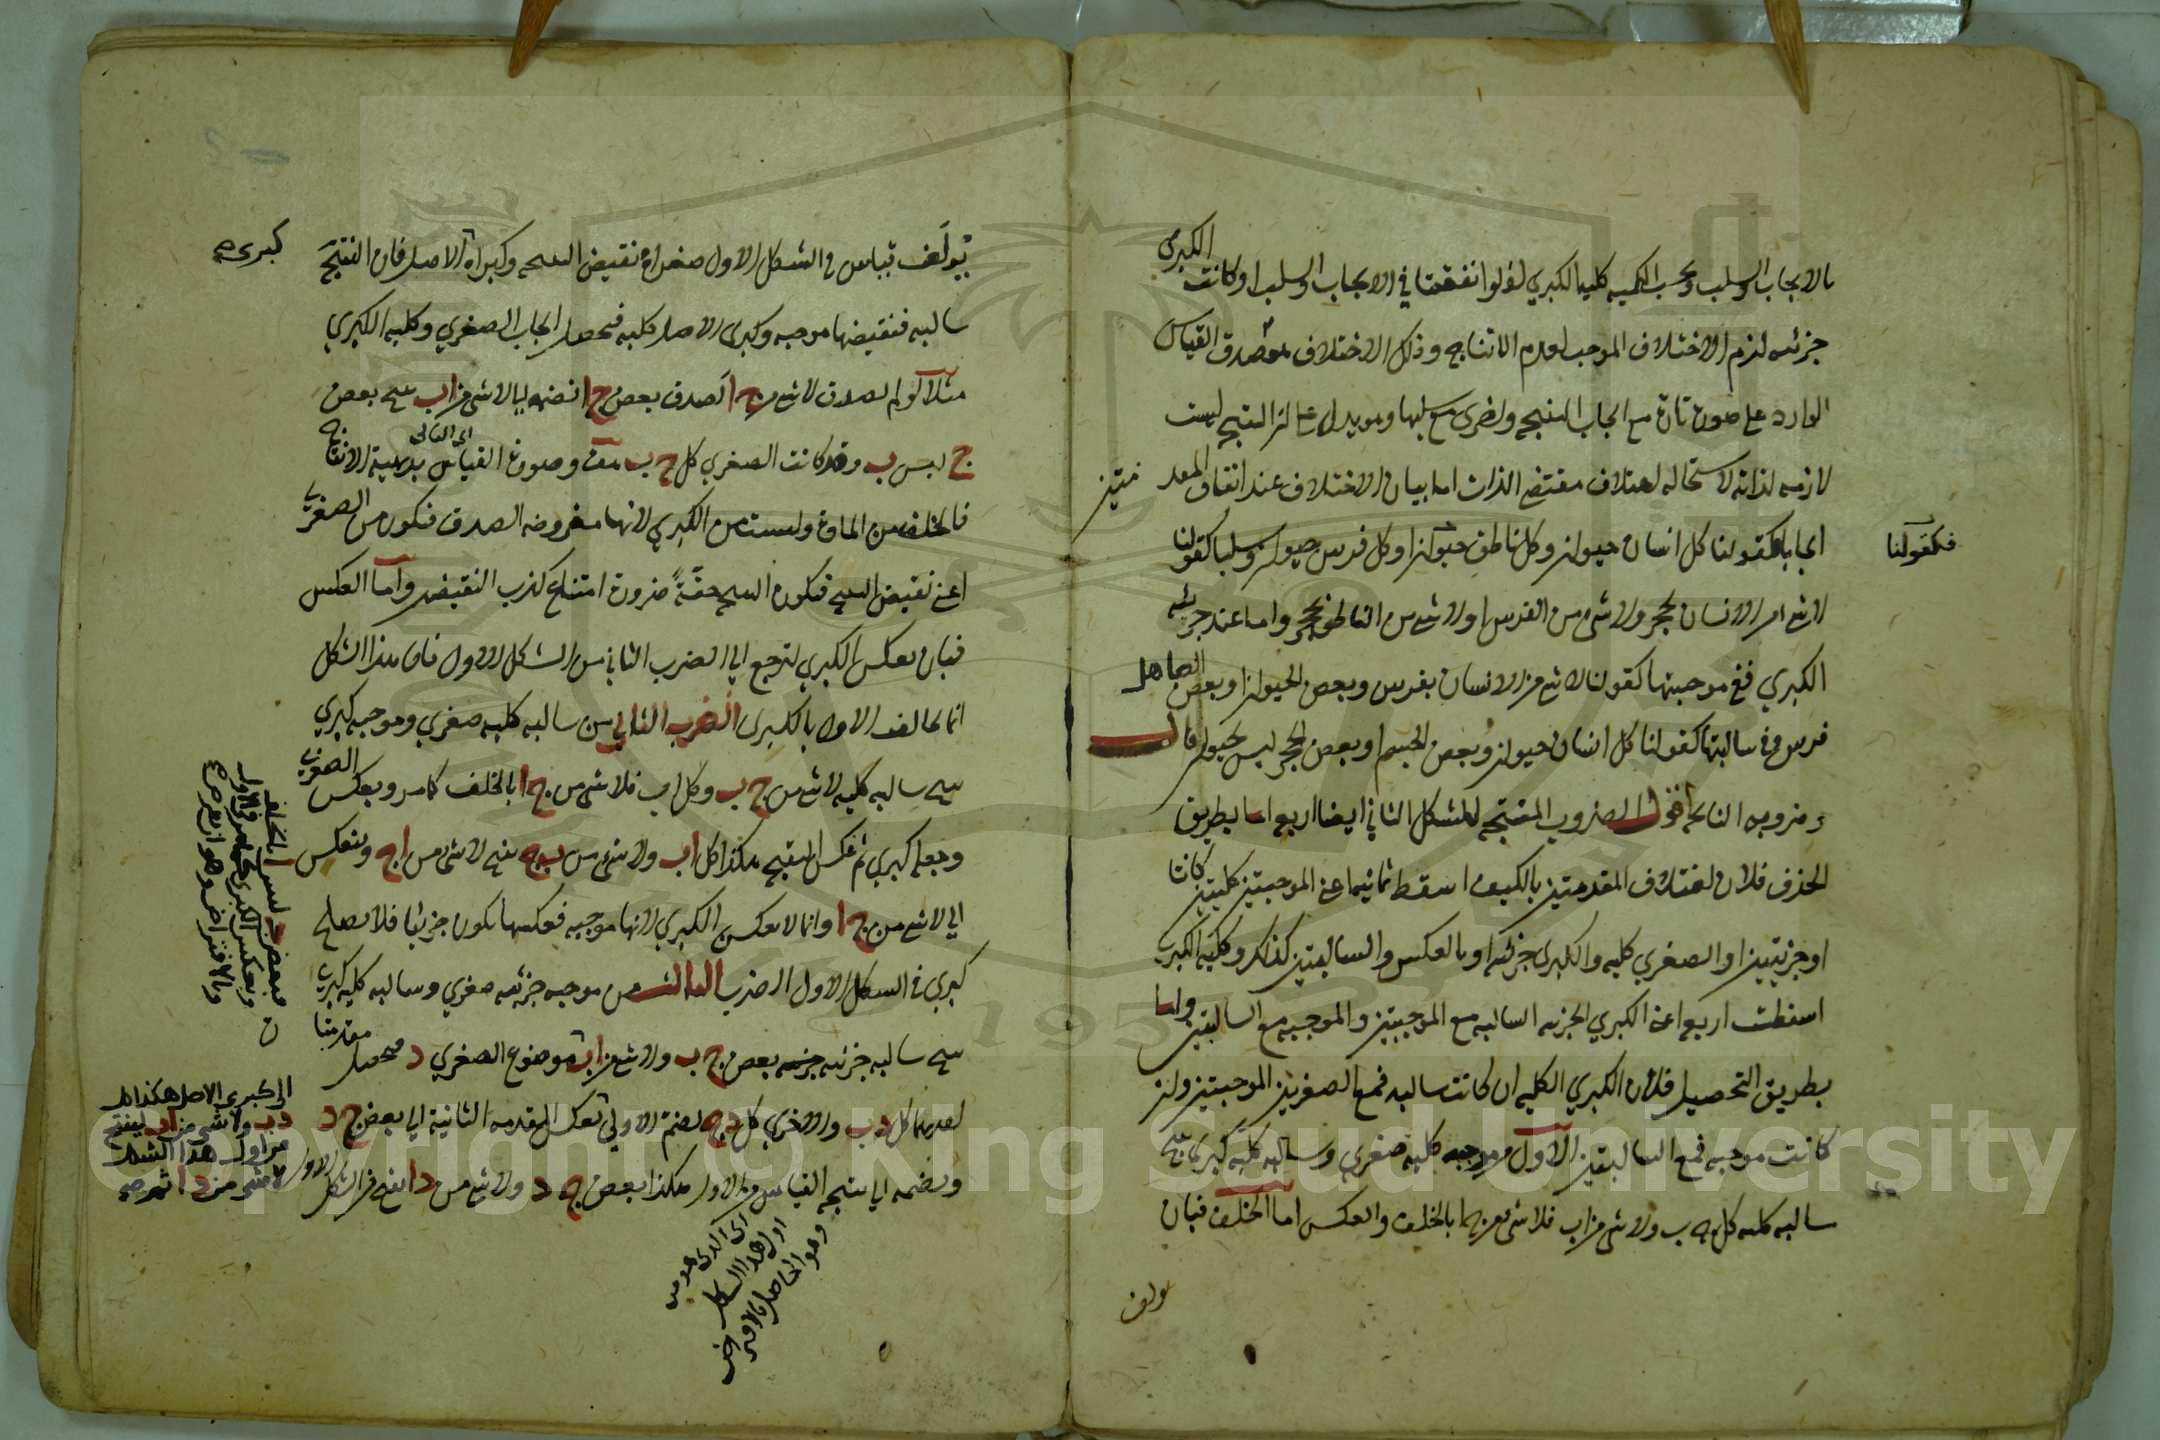 بالايجاب والسلب وبحسب الكميه كليه الكبري لانه لو اتفقتا في الايجاب والسلب او كانت الكبرى
جزئيه لزم الاختلاف الموجب لعدم الانتاج وذلك الاختلاف هو صدق القياس
الوارد على صورة تارة مع ايجاب النتيجه واخرى مع سلبها وهو يدل على ان النتيجه ليست
لازمه لذاته لاستحاله اختلاف مقتضى الذات اما بيان الاختلاف عند اتفاق المقد
متين
ايجابا فكقولنا كل انسان حيوان وكل ناطق حيوان او كل فرس حيوان وسلبا كقولنا
فكقولنا
لا شئ من الانسان بحجر ولا شئ من الفرس او لا شئ من الناطق بحجر واما عند جزئيه
الكبري ففي موجبتها كقولنا لا شئ من الانسان بفرس وبعض الحيوان او بعض الصاهل
فرس وفي سالبتها كقولنا كل انسان حيوان وبعض الجسم او بعض الحجر ليس بحيوان قال
وضروبه الناتجه اقول الضروب المنتجه للشكل الثاني ايضا اربع اما بطريق
الحذف فلان اختلاف المقدمتين بالكيف اسقط ثمانيه اعني الموجبتين كليتين كانتا
او جزئيتين او الصغري كليه والكبرى جزئيه او بالعكس والسالبتين كذلك وكليه الكبرى
اسقطت اربعه اعني الكبري الجزئيه السالبه مع الموجبتين والموجبه مع السالبتين واما
بطريق التحصيل فلان الكبري الكليه ان كانت سالبه فمع الصغريين الموجبتين وان
كانت موجبه فمع السالبتين الاول من موجبه كليه صغري وسالبه كليه كبري ينتج
سالبه كليه كل ج ب ولا شئ من ا ب فلا شئ من ج ا بالخلف والعكس اما الخلف فبان
يولف
يؤلف قياس في الشكل الاول صغراه نقيض النتيجه وكبراه الاصل فان النتيجه
كبرى
سالبه فنقيضها موجبه وكبرى الاصل كليه فيحصل ايجاب الصغري وكليه الكبري
مثلا لو لم يصدق لا شئ من ج ا لصدق بعض ج ا نضمه الى لا شئ من ا ب ينتج بعض
ج ليس ب وقد كانت الصغري كل ج ب هف وصورة القياس بديهية الانتاج
اي الثاني
فالخلف من المادة وليست من الكبري لانها مفروضه الصدق فيكون من الصغرى
اعني نقيض النتيجه فتكون النتيجه حقة ضرورة امتناع كذب النقيضين واما العكس
فبان يعكس الكبري لترجع الي الضرب الثاني من الشكل الاول فان هذا الشكل
انما يخالف الاول بالكبرى الضرب الثاني من سالبه كليه صغري وموجبه كبري
ينتج سالبه كليه لا شئ من ج ب وكل ا ب فلا شئ من ج ا بالخلف كما مر وبعكس الصغرى
وجعلها كبري ثم عكس النتيجه هكذا كل ا ب ولا شئ من ب ج ينتج لا شئ من ا ج وينعكس
الي لا شئ من ج ا وانما لا يعكس الكبري لانها موجبه فعكسها يكون جزئيا فلا يصلح
كبري في الشكل الاول الضرب الثالث من موجبه جزئيه صغري وسالبه كليه كبري
ينتج سالبه جزئيه بعض ج ب ولا شئ من ا ب موضوع الصغري د فيحصل مقدمتا
ن
احديهما كل د ب والاخري كل د ج نضم الاولي
الى كبرى الاصل هكذا كل
د ب ولا شئ من ا ب لينتج
من اول هذا الشكل
لا شئ من د ا ثم
بعكس المقدمه الثانية الي بعض ج د
ونضمه الي نتيجه القياس الاول هكذا بعض ج د ولا شئ من د ا ينتج من الشكل الاول
فبعض ج ليس ا بالخلف
وبعكس الكبرى
وبالافتراض وهو ان يفرض
اى الذى هو من
اول هذا الشكل
وهو الحاصل بالافتر
اض